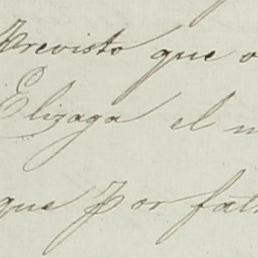 Previsto que o
Elizaga el m
que por falt